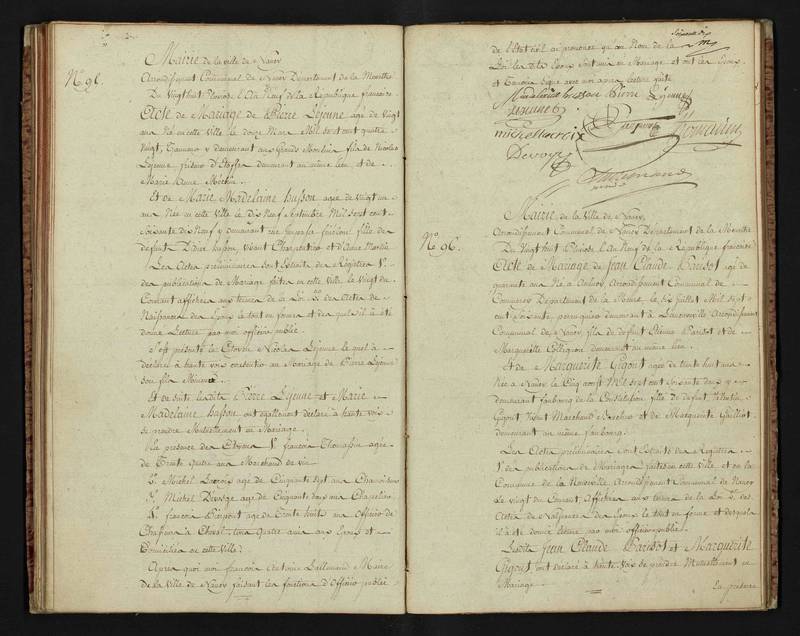 Mairie de la ville de Nancy
N.° 95.
Arrondissement Communal de Nancy Departement de la Meurthe
Du Vingt huit Pluviose l'An Neuf de la Republique française
Acte de Mariage de Pierre Lejeune agé de Vingt
ans Né en cette Ville le douze Mars Mil sept cent quatre
Vingt, y demeurant aux Grands Moulins fils de Nicolas
Lejeune demeurant au même lieu et de
Marie Anne
Et de Marie Madelaine husson agée de Vingt un
ans Née en cette Ville le Dix Neuf Septembre Mil sept cent
Soixante dix Neuf y demeurant rue fille de
defunt Didier husson, vivant Charpentier et d'Anne Martin
Les Actes préliminaires sont Extraits des Régistres 1.°
des publications de Mariage faites en cette Ville le Vingt du
Courant affichées aux termes de la Loi 2.° des Actes de
Naissances des Epoux le tout en forme et desquels il a été
donné Lecture par moi officier public
S'est présenté le Citoyen Nicolas Lejeune lequel a
déclaré à haute voix consentir au Mariage de Pierre Lejeune
son fils Mineur
Et de suite lesdits Pierre Lejeune et Marie
Madelaine husson ont également déclaré à haute voix
se prendre Mutuellement en Mariage.
En presence des Citoyens 1.° françois Thouvenin agé
de Trente quatre ans Marchand de vin
2.° Michel Lacroix agé de Cinquante sept ans
3.° Michel Devoge agé de Cinquante trois ans Chapelier
4.° françois agé de Trente huit ans Officier de
Chasseurs à Cheval tous quatre amis aux Epoux et
Domiciliés en cette Ville.
Apres quoi moi françois Antoine Lallemand Maire
de la Ville de Nancy faisant les fonctions d'Officier public
de l'Etat civil ai prononcé qu'au Nom de la
Loi lesdits Epoux sont unis en Mariage et ont les Epoux
et Temoins signé avec moi apres lecture faite
Marie Madelaine husson Pierre Lejeune
michel lacroix Thouvenin
Devoge
Lallemand
Mairie de la Ville de Nancy,
N.° 96.
Arrondissement Communal de Nancy Departement de la Meurthe
Du Vingt huit Pluviose l'An Neuf de la République française
Acte de Mariage de Jean Claude Parisot agé de
quarante ans Né à Arrondissement Communal de
Commercy Département de la Meuse, le Six Juillet Mil sept
cent Soixante, demeurant à Laneuville Arrondissement
Communal de Nancy, fils de defunt Parisot et de
Marguerite demeurant au même lieu.
Et de Marguerite Gigout agée de trente huit ans
Née à Nancy le Cinq aoust Mil sept cent Soixante deux y
demeurant faubourg de la Constitution, fille de defunt
Gigout Vivant Marchand et de Marguerite
demeurant au même faubourg.
Les Actes préliminaires sont Extraits des Registres
1.° des publications de Mariages faites en cette Ville et en la
Commune de la Neuville Arrondissement Communal de Nancy
le Vingt du Courant, Affichées aux termes de la Loi 2.° des
Actes de Naissances des Epoux le tout en forme et desquels
il a été donné lecture par moi officier public.
Lesdits Jean Claude Parisot et Marguerite
Gigout ont déclaré à haute voix se prendre Mutuellement en
Mariage
En presence